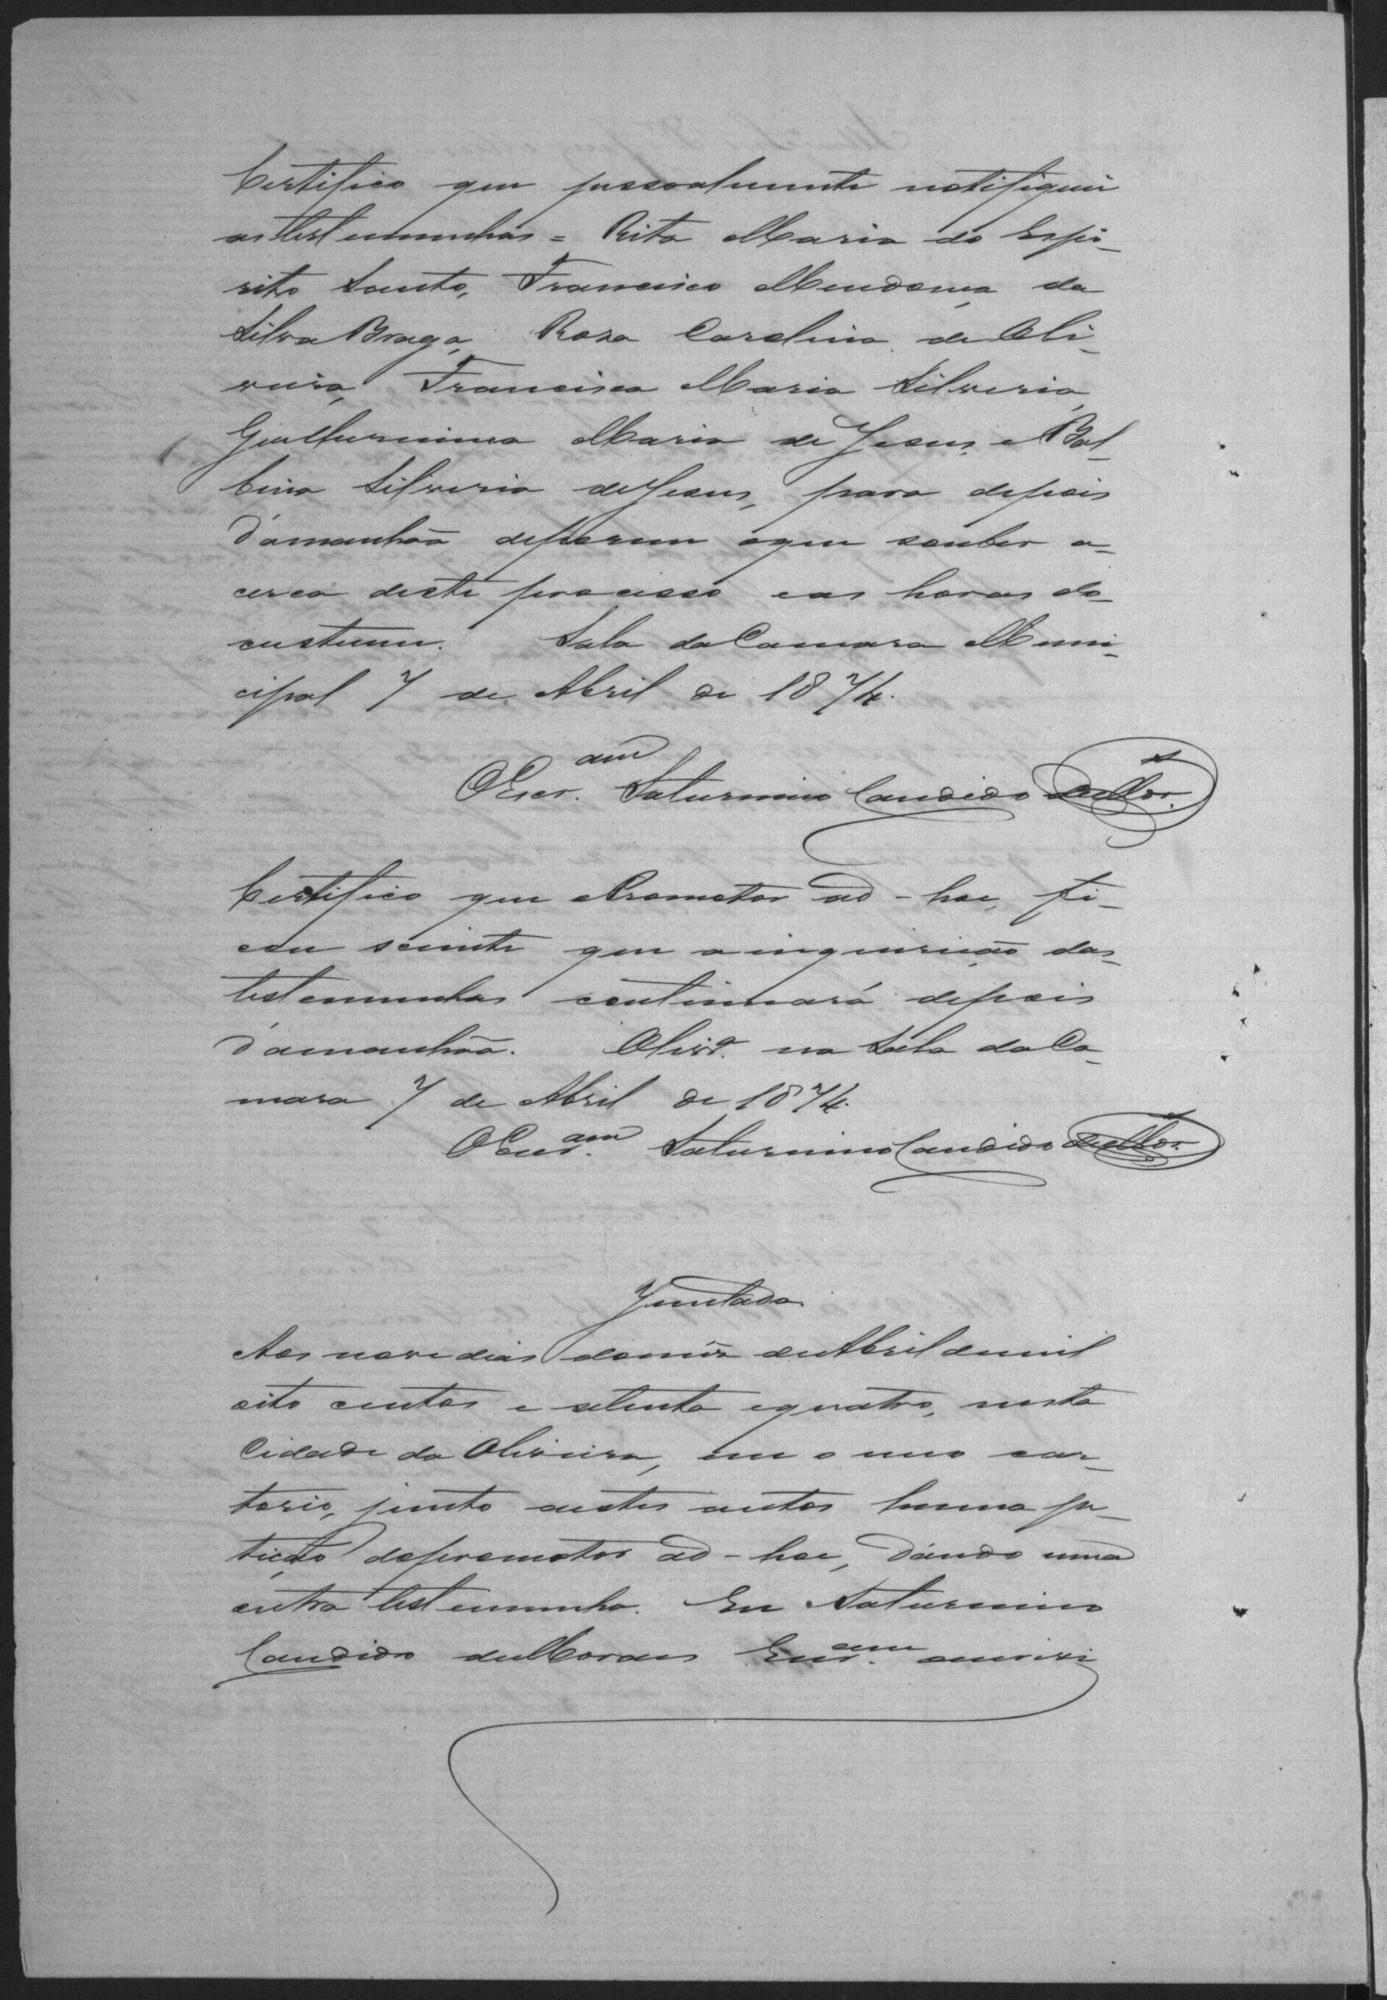 Certifico que pessoalmente notifiquei
as testemunhas = Rita Maria do Espi-
rito Santo, Francisco Mendonça da
Silva Braga, Rosa Carolina de Oli-
veira, Francisca Maria Silveria,
Guilhermina Maria de Jesus, e Bal-
bina Silveria de Jesus, para depois
d'amanhãa deporem o que souber a-
cerca deste processo e as horas do
custume. Sala da Camara Muni-
cipal 7 de Abril de 1874.
O Escr.am Saturnino Candido de Mor.s
Certifico que o Promotor ad-hoc, fi-
cou sciente que a inquirição das
testemunhas continuará depois
d'amanhãa. Olivr.a na Sala da Ca-
mara 7 de Abril de 1874.
O Escr.am Saturnino Candido de Mor.s
Juntada
Aos nove dias do mêz de Abril de mil
oito centos e setenta e quatro, nesta
Cidade da Oliveira, em o meo car-
torio, junto a estes autos huma pe-
tição do promotor ad-hoc, dando uma
outra testemunha. Eu Saturnino
Candido de Moraes Escr.am escrevi